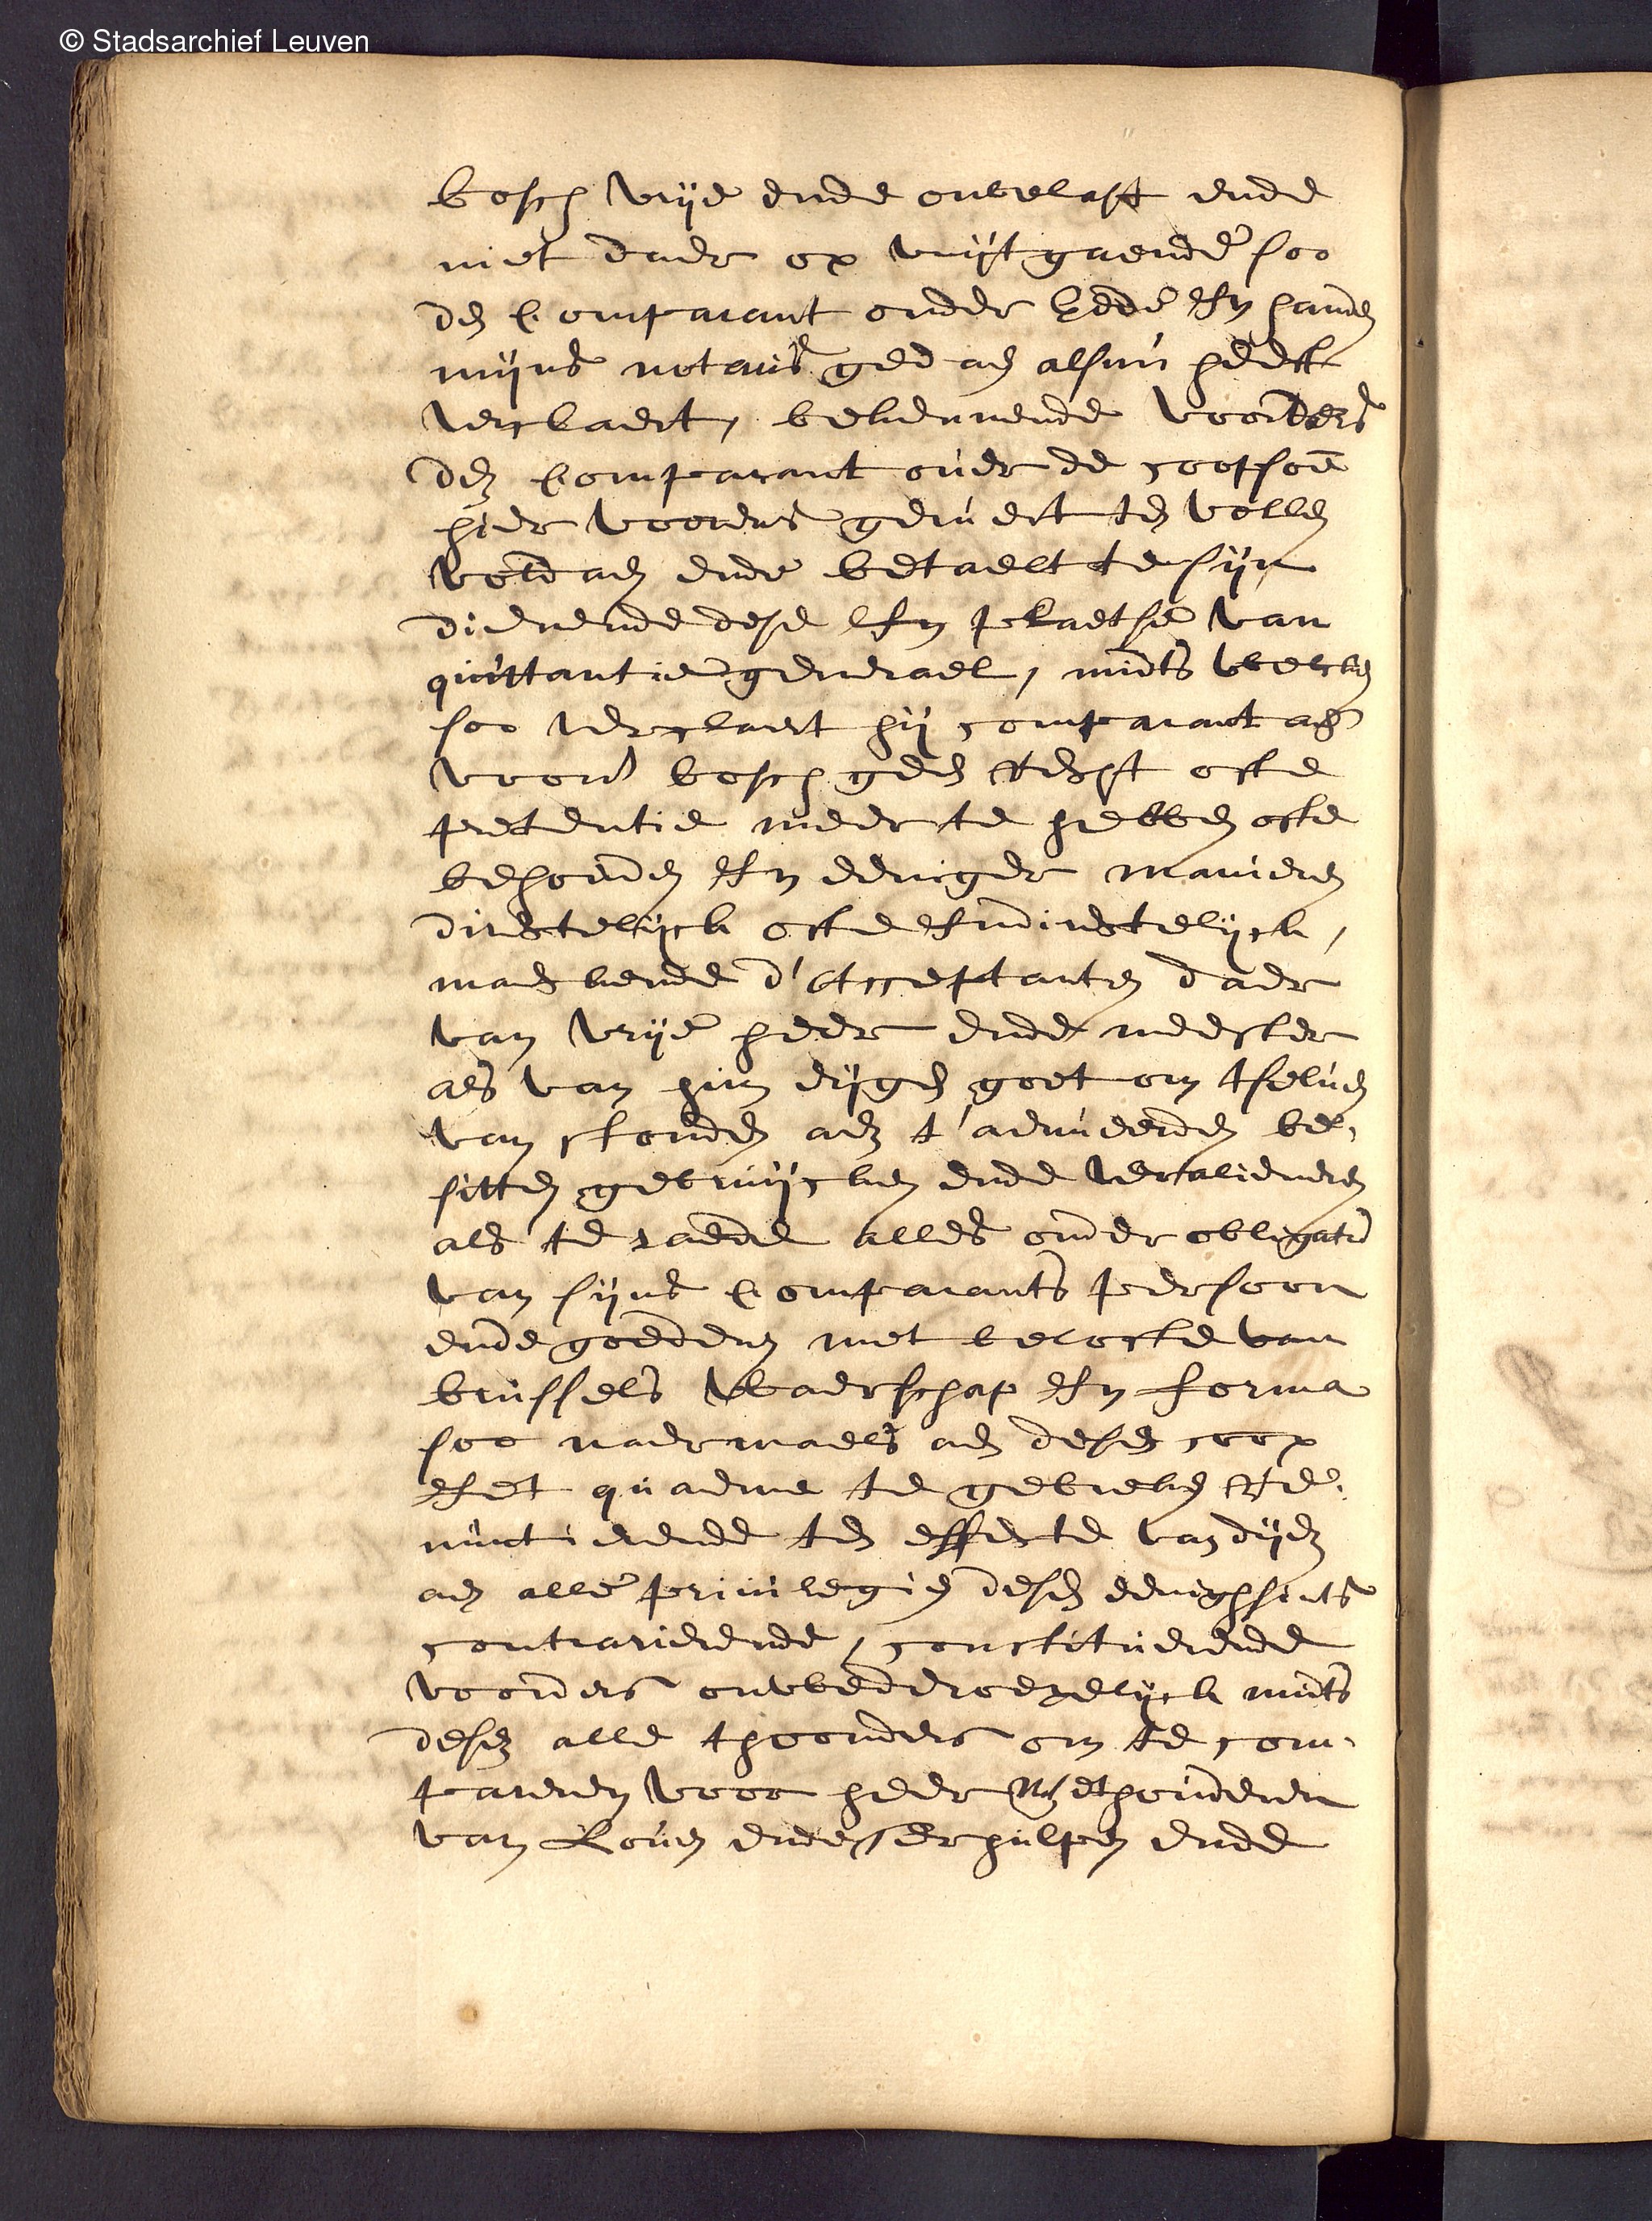 © Stadsarchief Leuven
bosch vrije ende onbelast ende
niet daer op uuijtgaende soo
den Comparant onder Eede In handen
mijns notaris gedaen alsnu heeft
verclaert, bekennende voorders
den Comparant ouer de coopsom̄e
hier voorens geruert ten vollen
voldaen ende betaelt te sijn
dienende dese In plaetse van
quittantie generael, midts welcken
soo verclaert hij comparant aen
voors bosch geen Recht ofte
pretentie meer te hebben ofte
behouden In eeniger manieren
directelijck ofte Indirectelijck,
maeckende d'Acceptanten daer
van vrije heer ende meester
als van hun eijgen goet om tseluen
van stonden aen t'aenueerden be-
sitten gebruijcken ende veralieneren
als te raede alles onder obligatie
van sijns Comparants persoon
ende goederen met belofte van
brussels Waerschap In forma
soo naermaels aen desen coop
Iet quaeme te gebreken Re-
nuntierende ten effecte van dijen
aen alle priuilegien desen eenighsints
contrarierende, constituerende
voorders onwederroepelijck mits
desen alle thoonders om te com-
pareren voor heer Wethouderen
van Louen ende Terhulpen ende